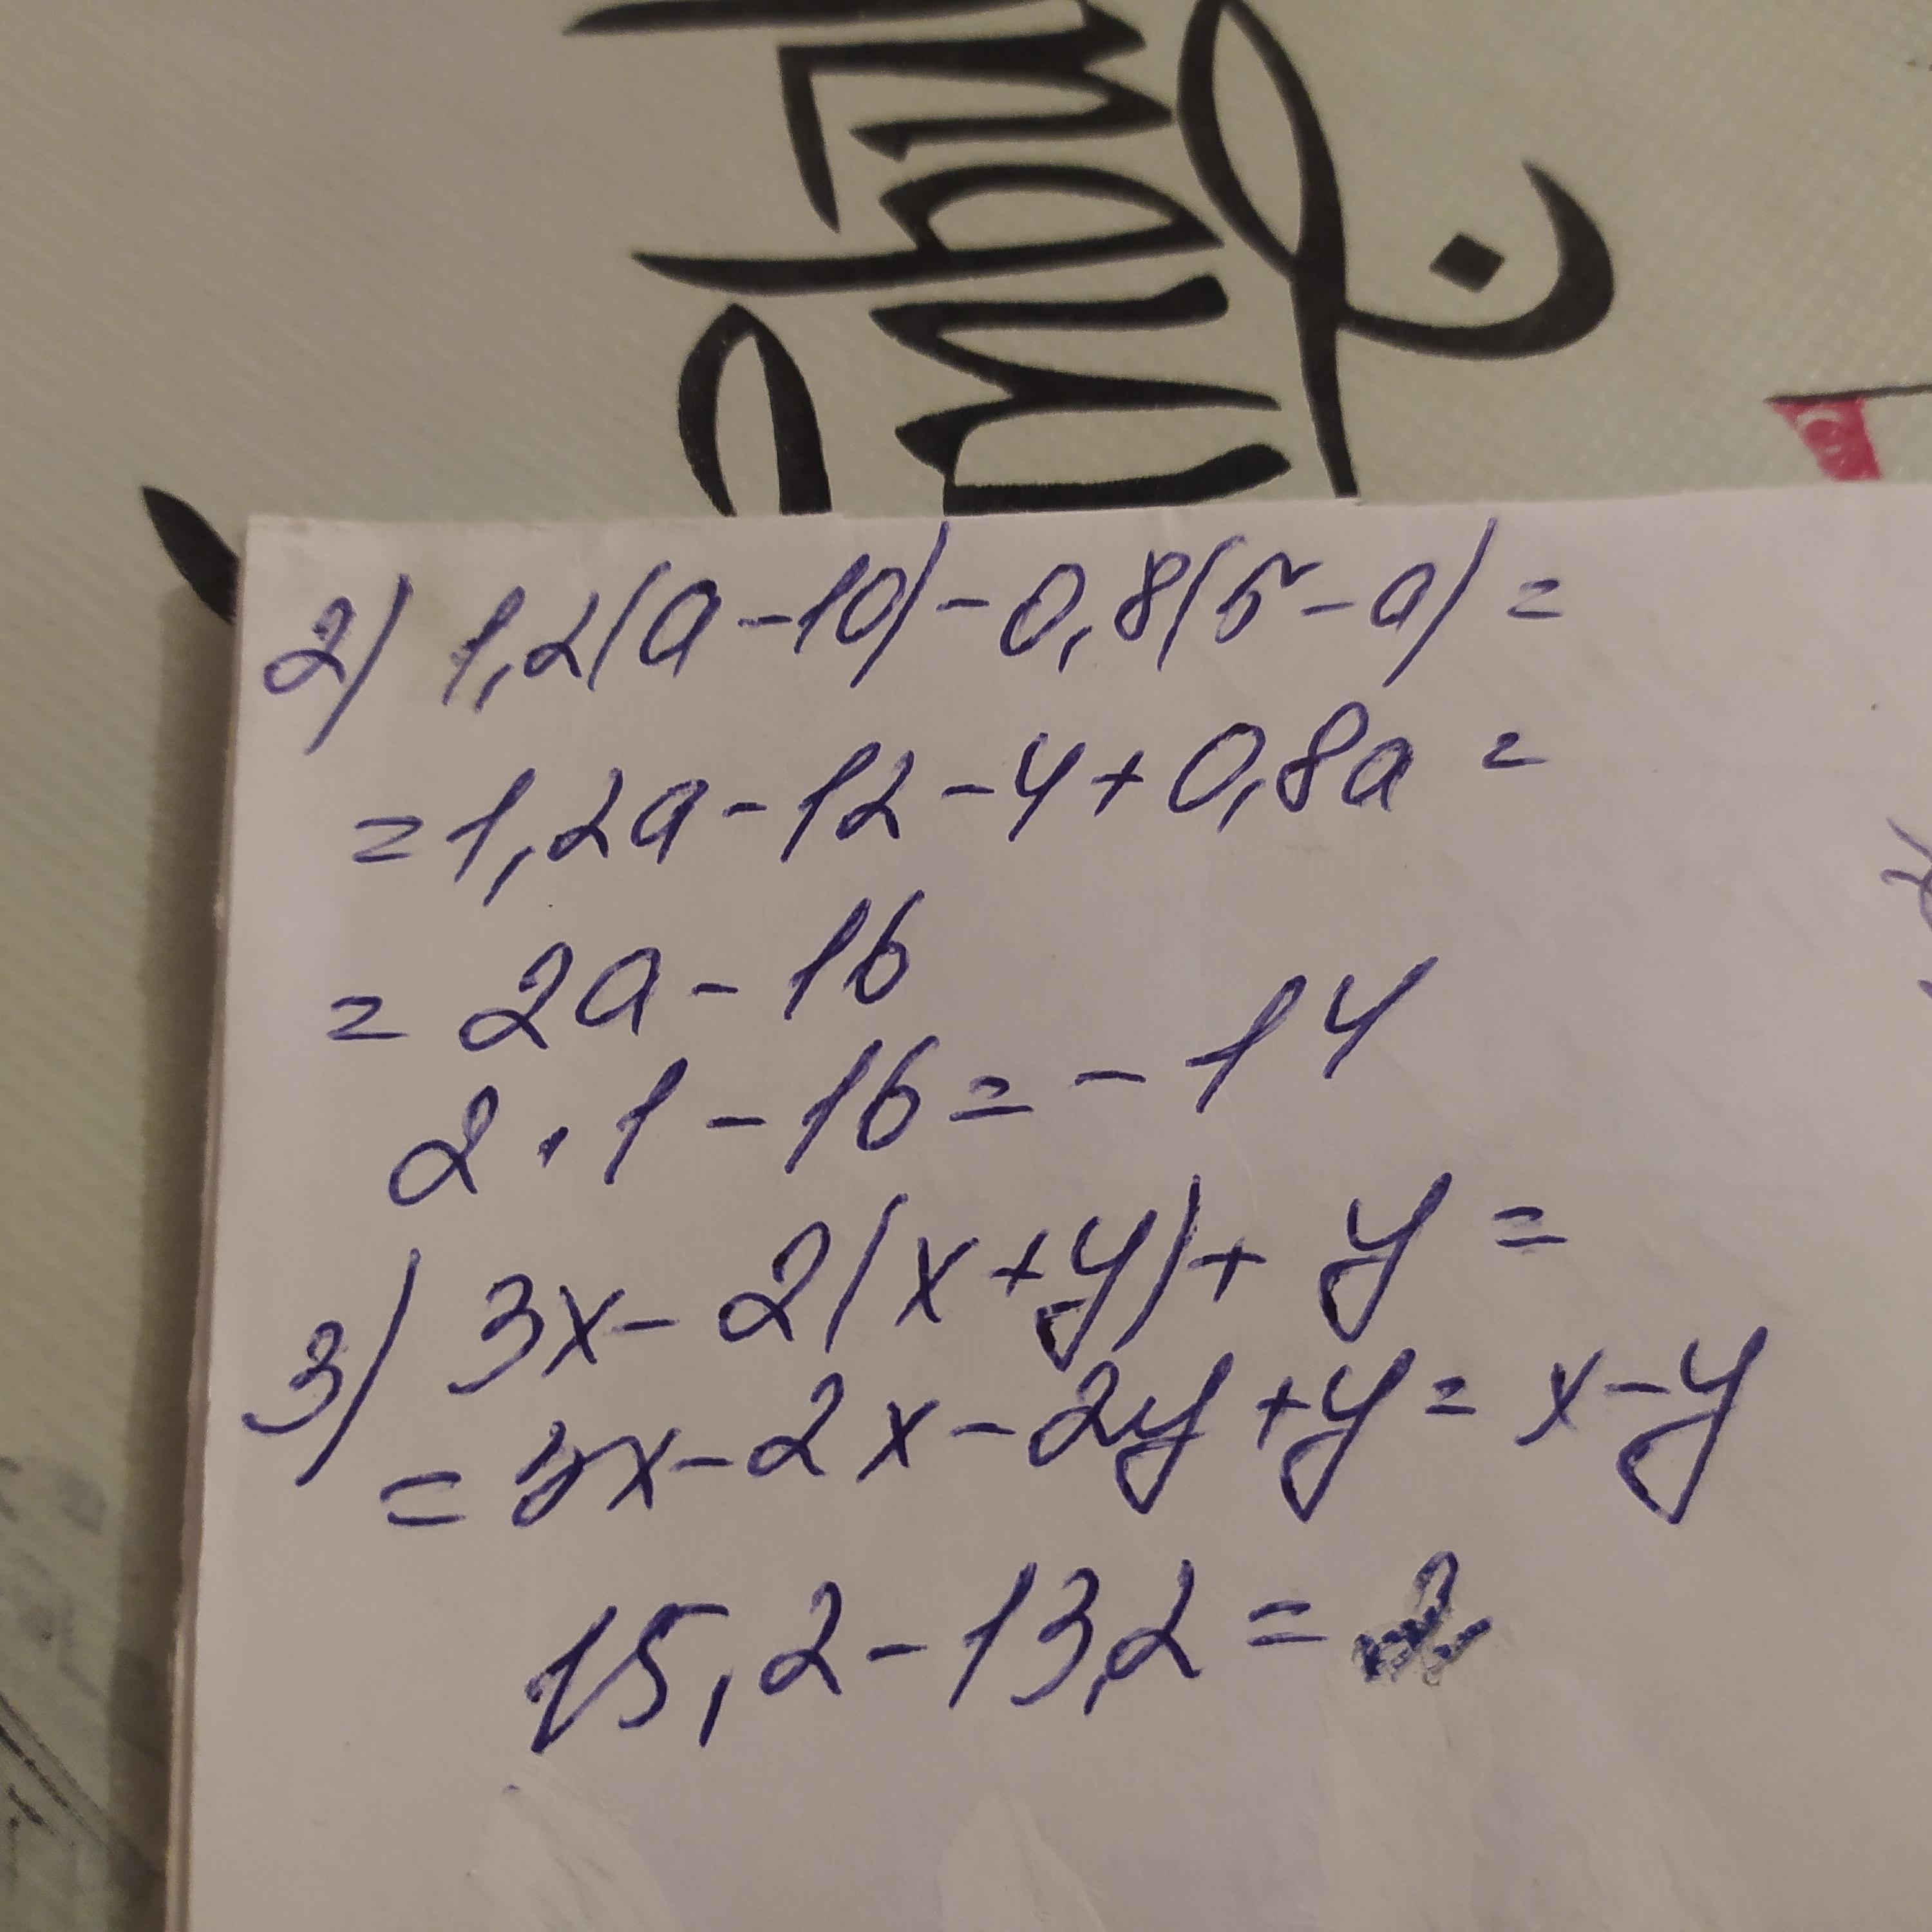 2) 1,2(a-10)-0,8(5-a)=
=1,2a-12-4+0,8a=
=2a-16
2·1-16=-14
3) 3x-2(x+y)+y=
=3x-2x-2y+y=x-y
15,2-13,2=2